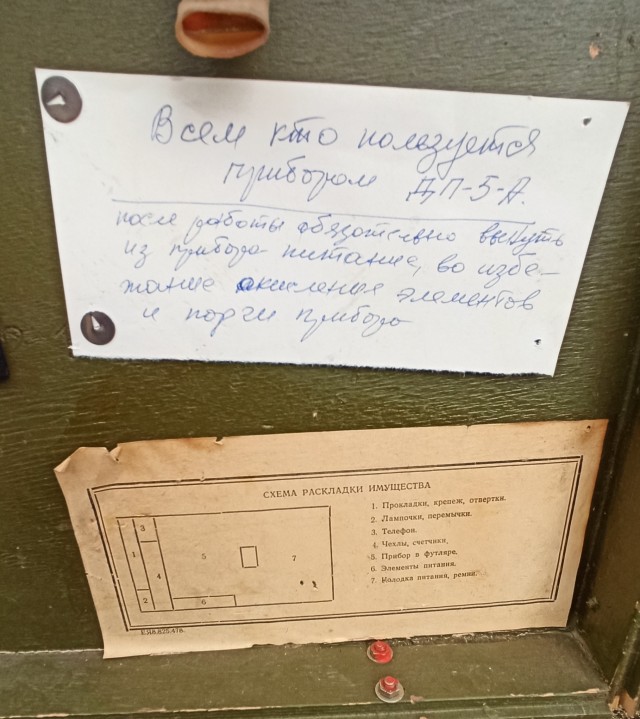 Всем кто пользуется
прибором ДП-5-А.
после работы обязательно вынуть
из прибора питание, во избе-
жание окисления элементов
и порчи прибора
СХЕМА РАСКЛАДКИ ИМУЩЕСТВА
1. Прокладки, крепеж, отвертки.
2. Лампочки, перемычки.
3. Телефон.
4. Чехлы, счетчики.
5. Прибор в футляре.
6. Элементы питания.
7. Колодка питания, ремни.
3
1
4
5
7
2
6
ЕЯ8.825.478.